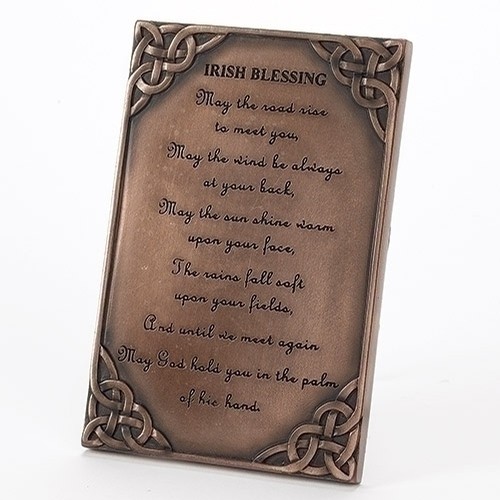 IRISH BLESSING
May the road rise
to meet you,
May the wind be always
at your back,
May the sun shine warm
upon your face,
The rains fall soft
upon your fields,
And until we meet again
May God hold you in the palm
of his hand.